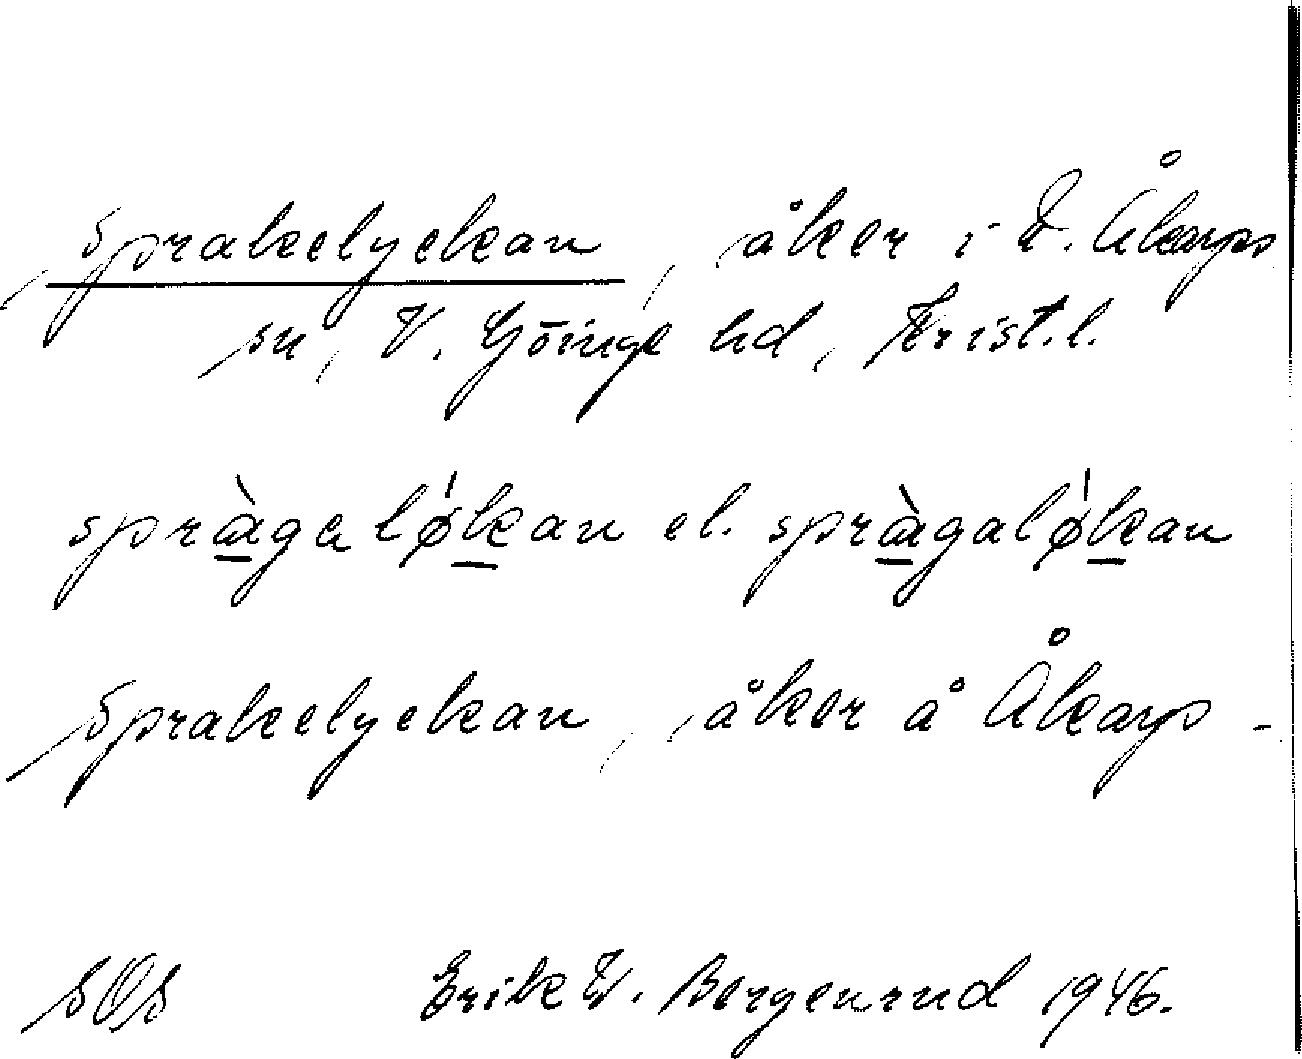 Sprakelyckan, åker i V. Åkarps
sn, V. Göinge hd, Krist.l.
spràgaløkan el. spràgaløkan
Sprakelyckan, åker å Åkarps -
SOS Erik W. Bergenrud 1946.